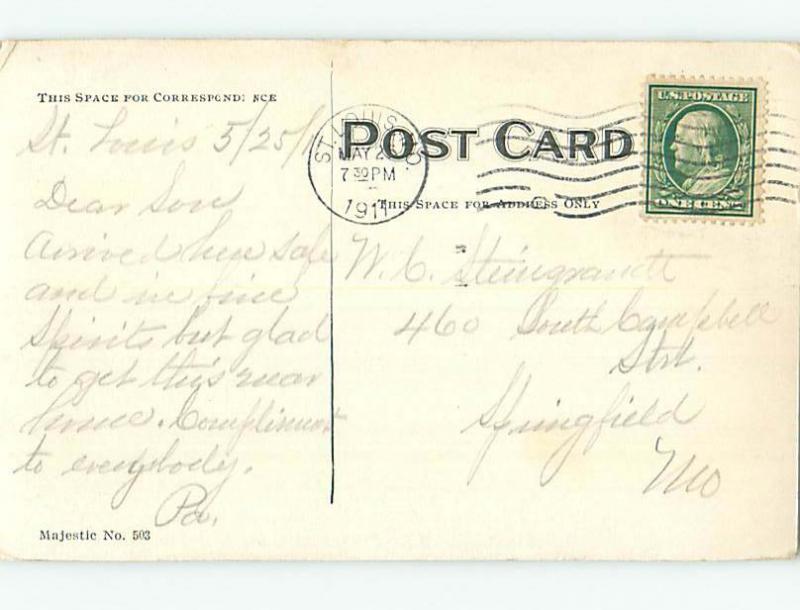 THIS SPACE FOR CORRESPONDENCE
St. Louis 5/25/11
Dear Son
Arrived here safe
and in fine
Spirits but glad
to get this near
home. Compliment
to everybody.
Pa.
Majestic No. 503
POST CARD
ST. LOUIS, MO.
MAY 25
7 30 PM
1911
U.S. POSTAGE
ONE CENT
THIS SPACE FOR ADDRESS ONLY
W. C. Steingrandt
460 South Campbell
Strt.
Springfield
Mo